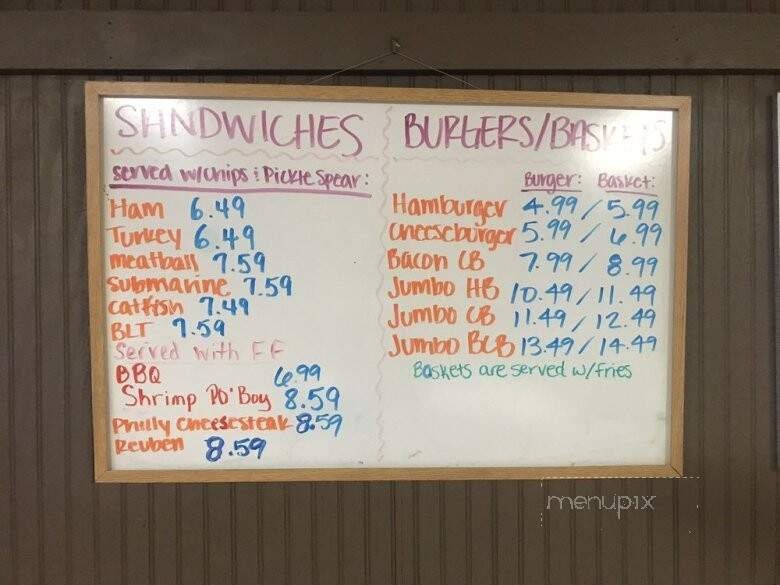 SANDWICHES
served w/chips & Pickle Spear:
Ham 6.49
Turkey 6.49
meatball 7.59
submarine 7.59
catfish 7.49
BLT 7.59
Served with FF
BBQ 6.99
Shrimp Po' Boy 8.59
Philly cheesesteak 8.59
Reuben 8.59
BURGERS/BASKETS
Burger: Basket:
Hamburger 4.99/5.99
cheeseburger 5.99/6.99
Bacon CB 7.99/8.99
Jumbo HB 10.49/11.49
Jumbo CB 11.49/12.49
Jumbo BCB 13.49/14.49
Baskets are served w/fries
menupix